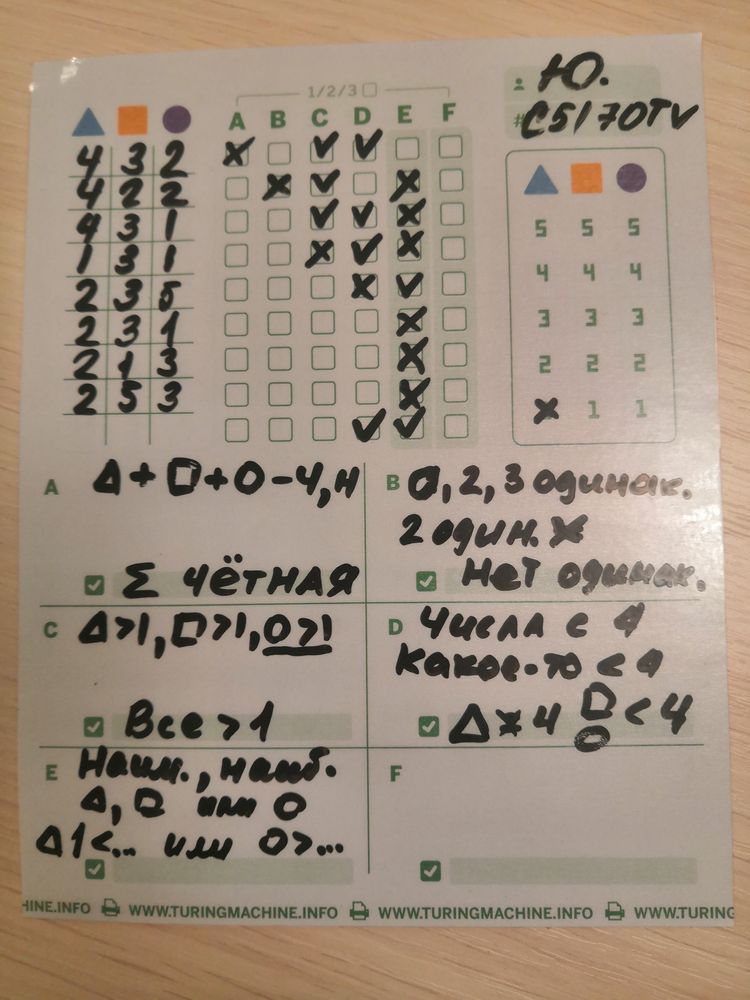 1/2/3
Ю.
# C5170TV
A B C D E F
4 3 2
4 2 2
4 3 1
1 3 1
2 3 5
2 3 1
2 1 3
2 5 3
5 5 5
4 4 4
3 3 3
2 2 2
1 1
A Δ+□+О-Ч,Н
Σ чётная
B 0,2,3 одинак.
2 один. X
Нет одинак.
C Δ>1, □>1, О>1
Все >1
D Числа с 4
какое-то < 4
□ < 4
E Наим., наиб.
Δ, □ или О
Δ1<... или О>...
F
HINE.INFO WWW.TURINGMACHINE.INFO WWW.TURINGMACHINE.INFO WWW.TURING